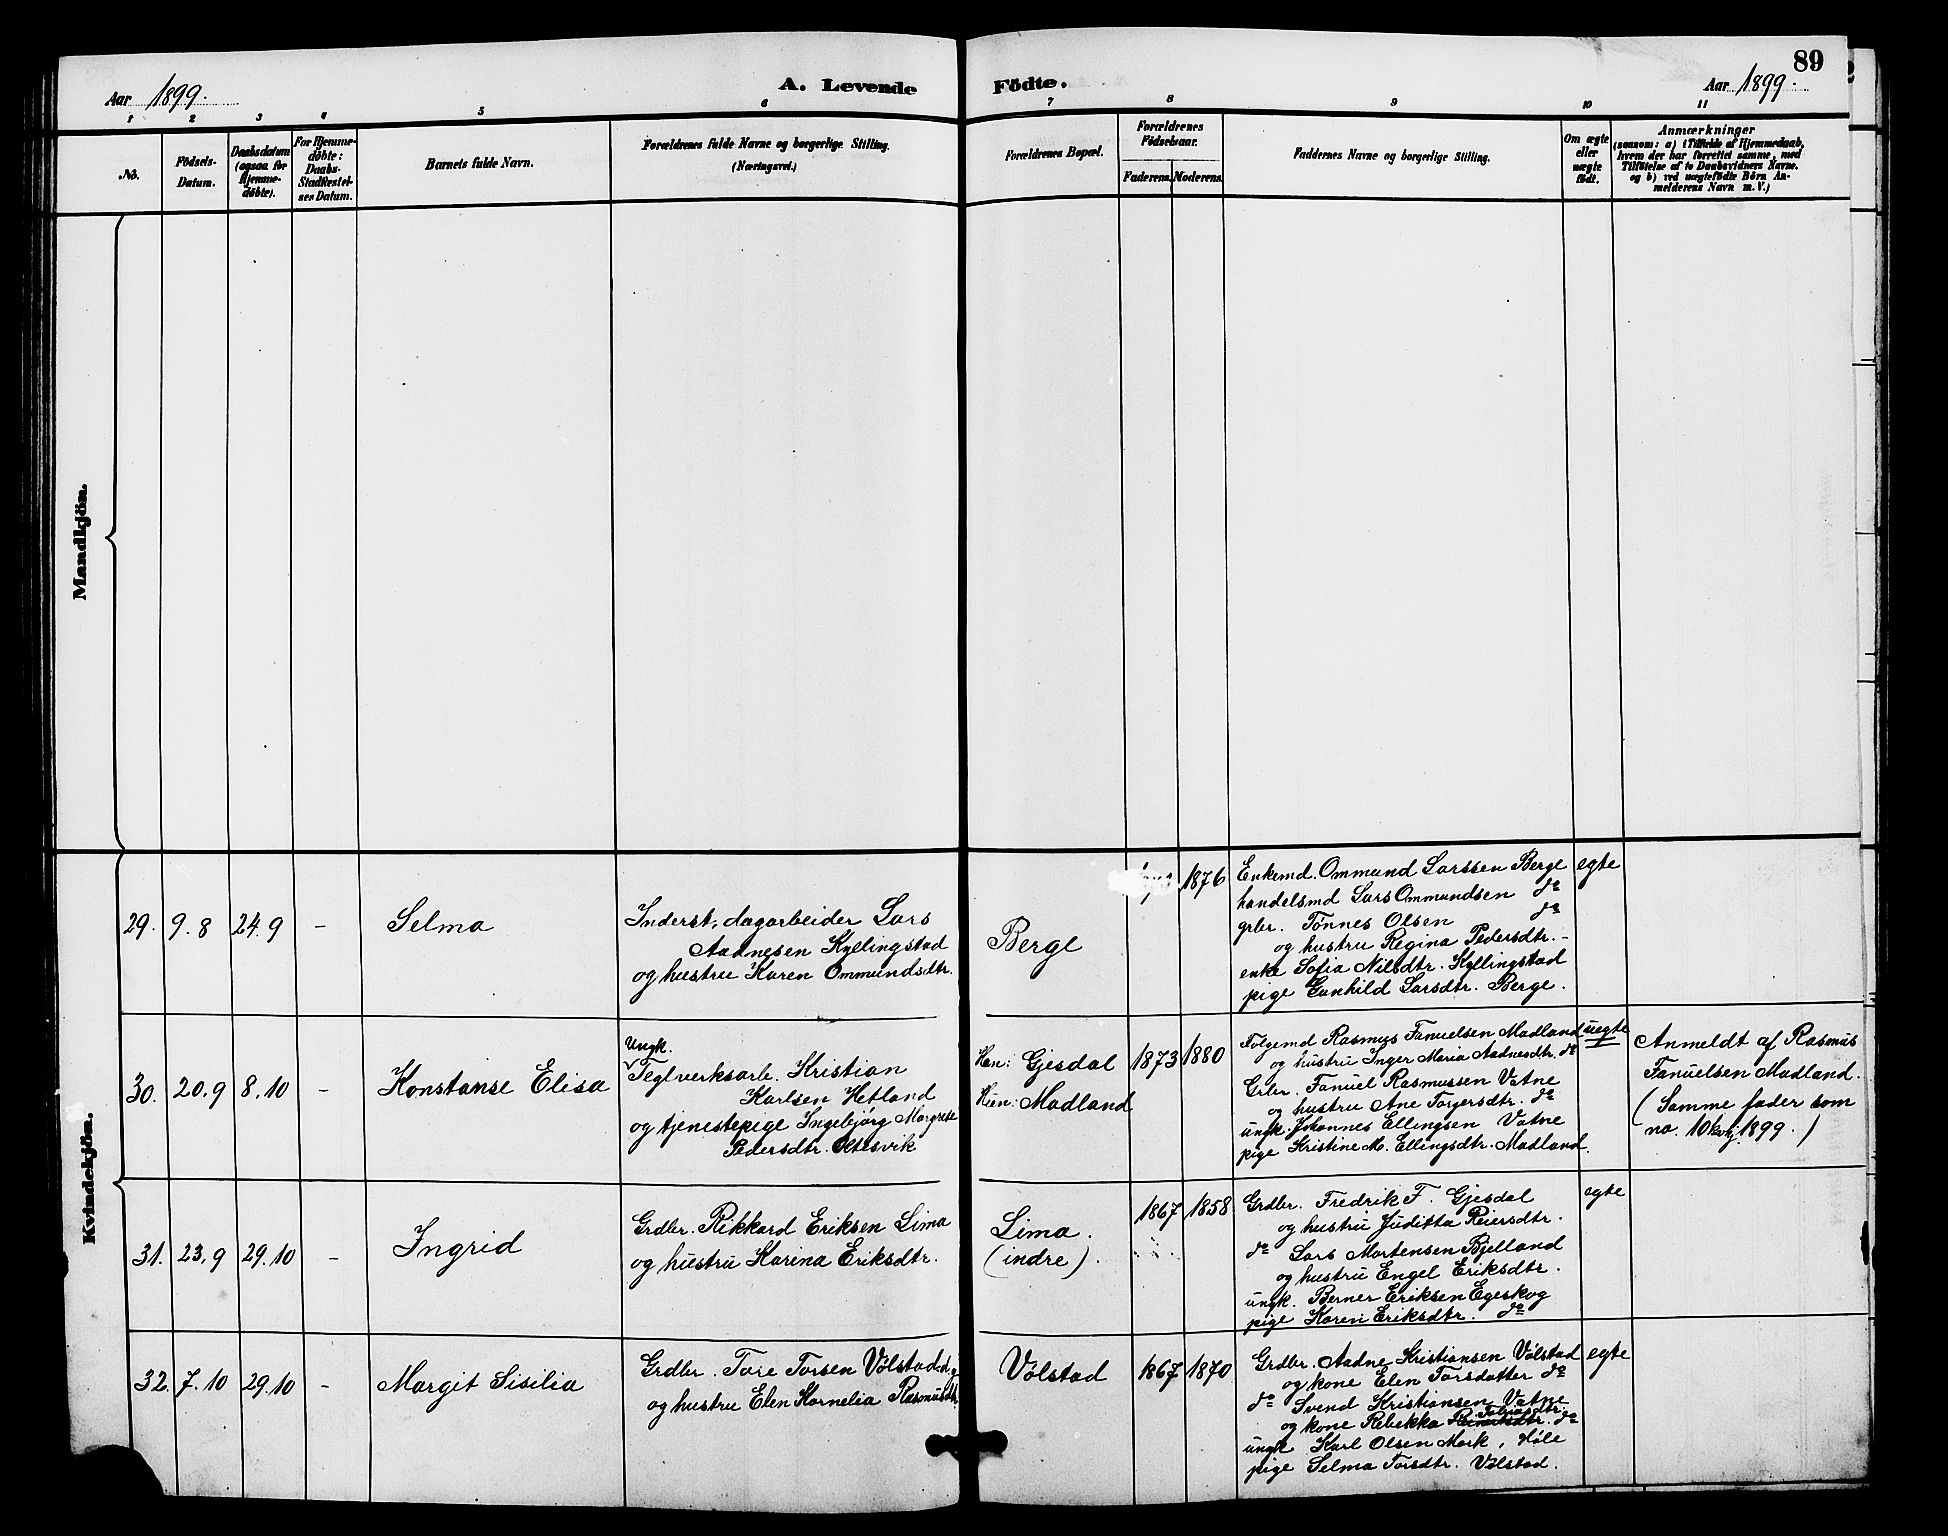 89
Aar 1899.
A. Levende
Födte.
Aar 1899.
1 2 3 4 5 6 7 8 9 10 11
No.
Födsels-
Datum.
Daabsdatum
(ogsaa for
Hjemme-
døbte).
For Hjemme-
døbte:
Daabs-
Stadfæstel-
ses Datum.
Barnets fulde Navn.
Forældrenes fulde Navne og borgerlige Stilling.
(Næringsvei.)
Forældrenes Bopæl.
Forældrenes
Födselsaar.
Faderens. Moderens.
Faddernes Navne og borgerlige Stilling.
Om ægte
eller
uægte
født.
Anmærkninger
(saasom: a) i Tilfælde af Hjemmedaab,
hvem der har forrettet samme, med
Tilföielse af to Daabsvidners Navne.
og b) ved uægtefödte Börn An-
melderens Navn m. V.)
Mandkjön.
Kvindekjön.
29. 9.8 24.9 – Selma
Inderst, dagarbeider Lars
Aadnesen Kyllingstad
og hustru Karen Ommundsdtr.
Berge
1876
Enkemd. Ommund Larssen Berge
handelsmd Lars Ommundsen do
grbr. Tønnes Olsen do
og hustru Regina Pedersdtr. –
enke Sofia Nilsdtr. Kyllingstad
pige Gunhild Larsdtr. Berge.
egte
30. 20.9 8.10 – Konstanse Elisa
Ungk.
Teglverksarb. Kristian
Karlsen Hetland
og tjenestepige Ingebjørg Margrete
Pedersdtr. Oltesvik
Han: Gjesdal
Hun: Madland
1873 1880
Følgemd Rasmus Fanuelsen Madland
og hustru Inger Maria Aadnesdtr. do
Grbr. Fanuel Rasmussen Vatne
og hustru Ane Torgersdtr. do
ungk. Johannes Ellingsen Vatne
pige Kristine M. Ellingsdtr. Madland.
uegte
Anmeldt af Rasmus
Fanuelsen Madland.
(Samme fader som
no. 10 kvkj. 1899.)
31. 23.9 29.10 – Ingrid
Grdbr. Rikkard Eriksen Lima
og hustru Karina Eriksdtr.
Lima.
(indre).
1867 1858
Grdbr. Fredrik F. Gjesdal
og hustru Juditta Reiersdtr.
do Lars Mortensen Bjelland
og hustru Engel Eriksdtr.
ungk. Berner Eriksen Egeskog
pige Karen Eriksdtr. do
egte
32. 7.10 29.10 – Margit Sisilia
Grdbr. Tore Torsen Vølstad
og hustru Elen Kornelia Rasmusdtr
Vølstad
1867 1870
Grdbr. Aadne Kristiansen Vølstad
og kone Elen Torsdatter do
do Svend Kristiansen Vatne
og kone Rebekka Tobiasdtr. do
ungk Karl Olsen Mork, Høle
pige Selma Torsdtr. Vølstad.
egte